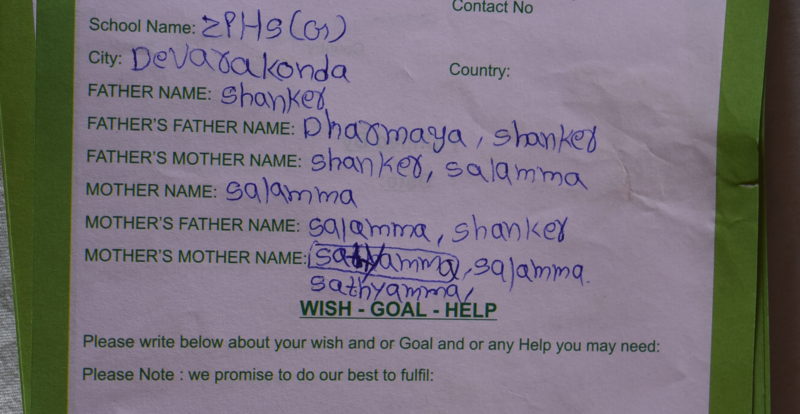 Contact No
School Name: ZPHS (G)
City: Devarakonda
Country:
FATHER NAME: Shanker
FATHER'S FATHER NAME: Dharmaya, shanker
FATHER'S MOTHER NAME: shanker, salamma
MOTHER NAME: salamma
MOTHER'S FATHER NAME: salamma, shanker
MOTHER'S MOTHER NAME: sathyamma, salamma.
sathyamma,
WISH - GOAL - HELP
Please write below about your wish and or Goal and or any Help you may need:
Please Note : we promise to do our best to fulfil: